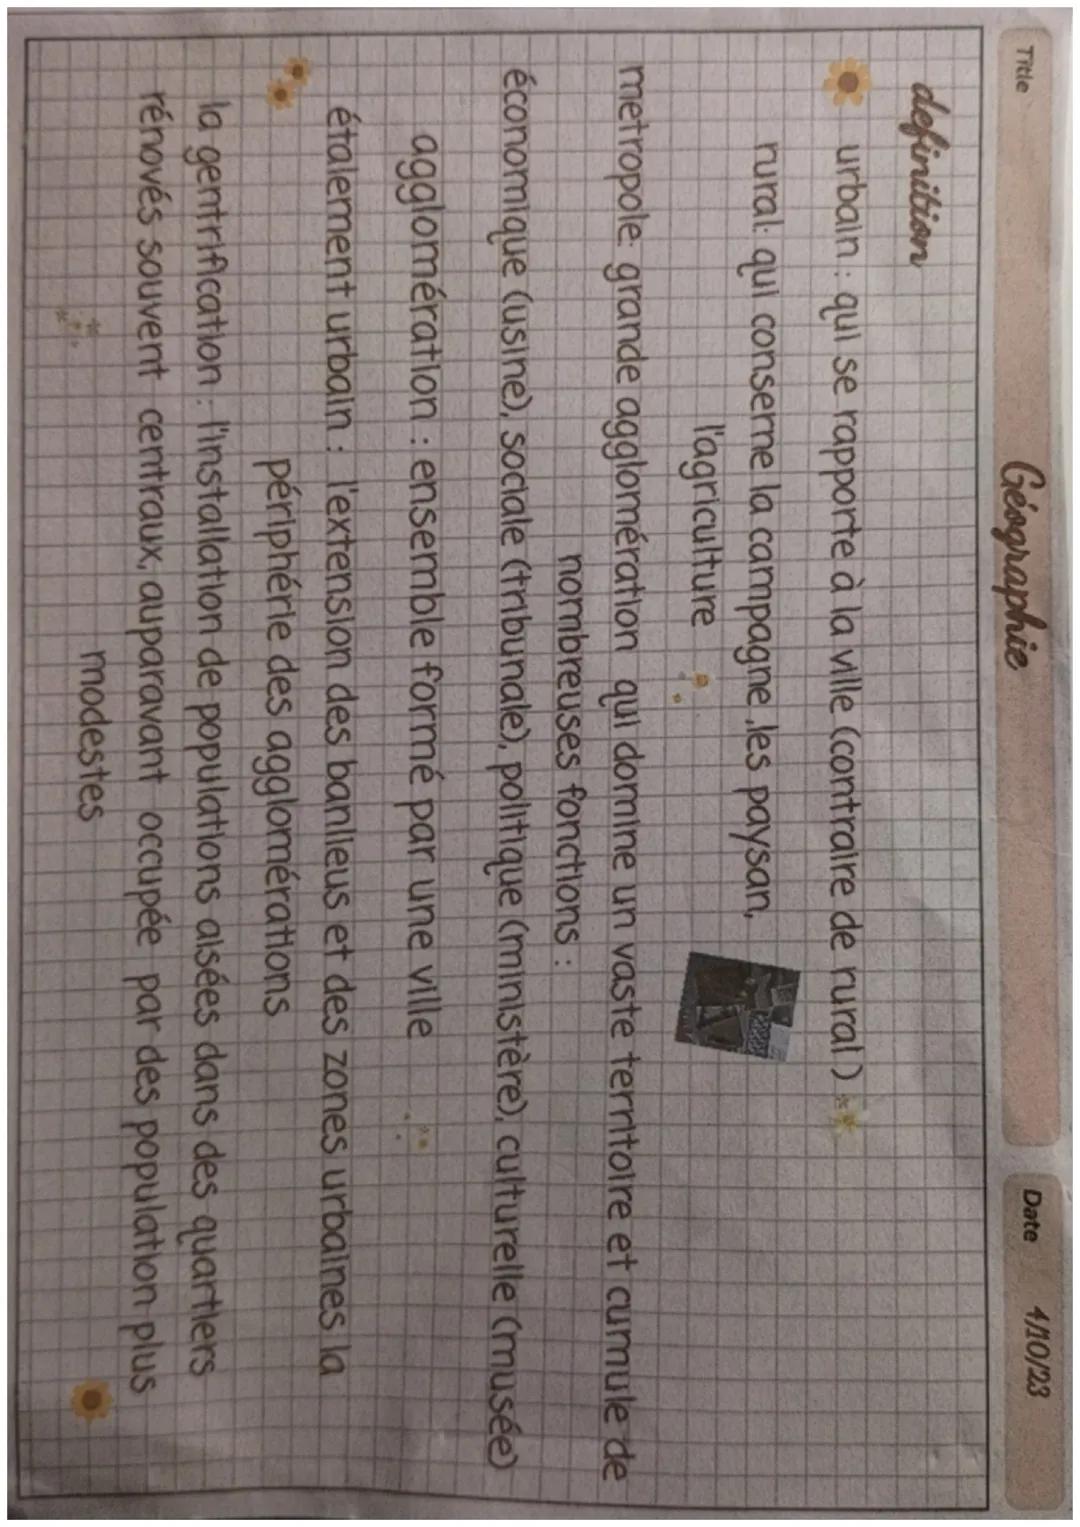 Title
Géographie
Date 4/10/23
definition
urbain : qui se rapporte à la ville (contraire de rural)
rural: qui conserne la campagne ,les paysan,
l'agriculture
metropole: grande agglomération qui domine un vaste territoire et cumule de
nombreuses fonctions :
économique (usine), sociale (tribunale), politique (ministère), culturelle (musée)
agglomération : ensemble formé par une ville
étalement urbain : l'extension des banlieus et des zones urbaines la
périphérie des agglomérations
la gentrification : l'installation de populations aisées dans des quartiers
rénovés souvent centraux, auparavant occupée par des population plus
modestes